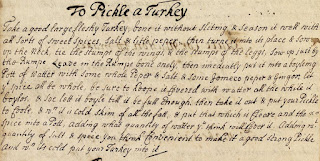 To Pickle a Turkey
Take a good large fleshy Turkey, bone it without Sliting & Season it well with
all Sorts of sweet Spices, Salt & little peper, then turn it into its place & Sow
up the neck, cut the Stumps of the wings & the stumps of the leggs, sow up just by
the Rumpe Leave on the Rumps bone only, then imediatly put it into a boyling
Pott of Water with some whole Peper & Salt & some Jameco peper & Ginger, Let
yr spice all be whole, be sure to keepe it Covered with water all the while it
boyles, & soe let it boyle till it be just through, then take it out & put your Pickle
to Coole, & when it is cold skim of all the fatt, & put that which is cleare and the
spice into a Pott, Adding what quantity of water yu think will Cover it. Adding
quantity of Salt & spice you think Convenient to make it a good strong Pickle
and when tis cold put your Turkey into it